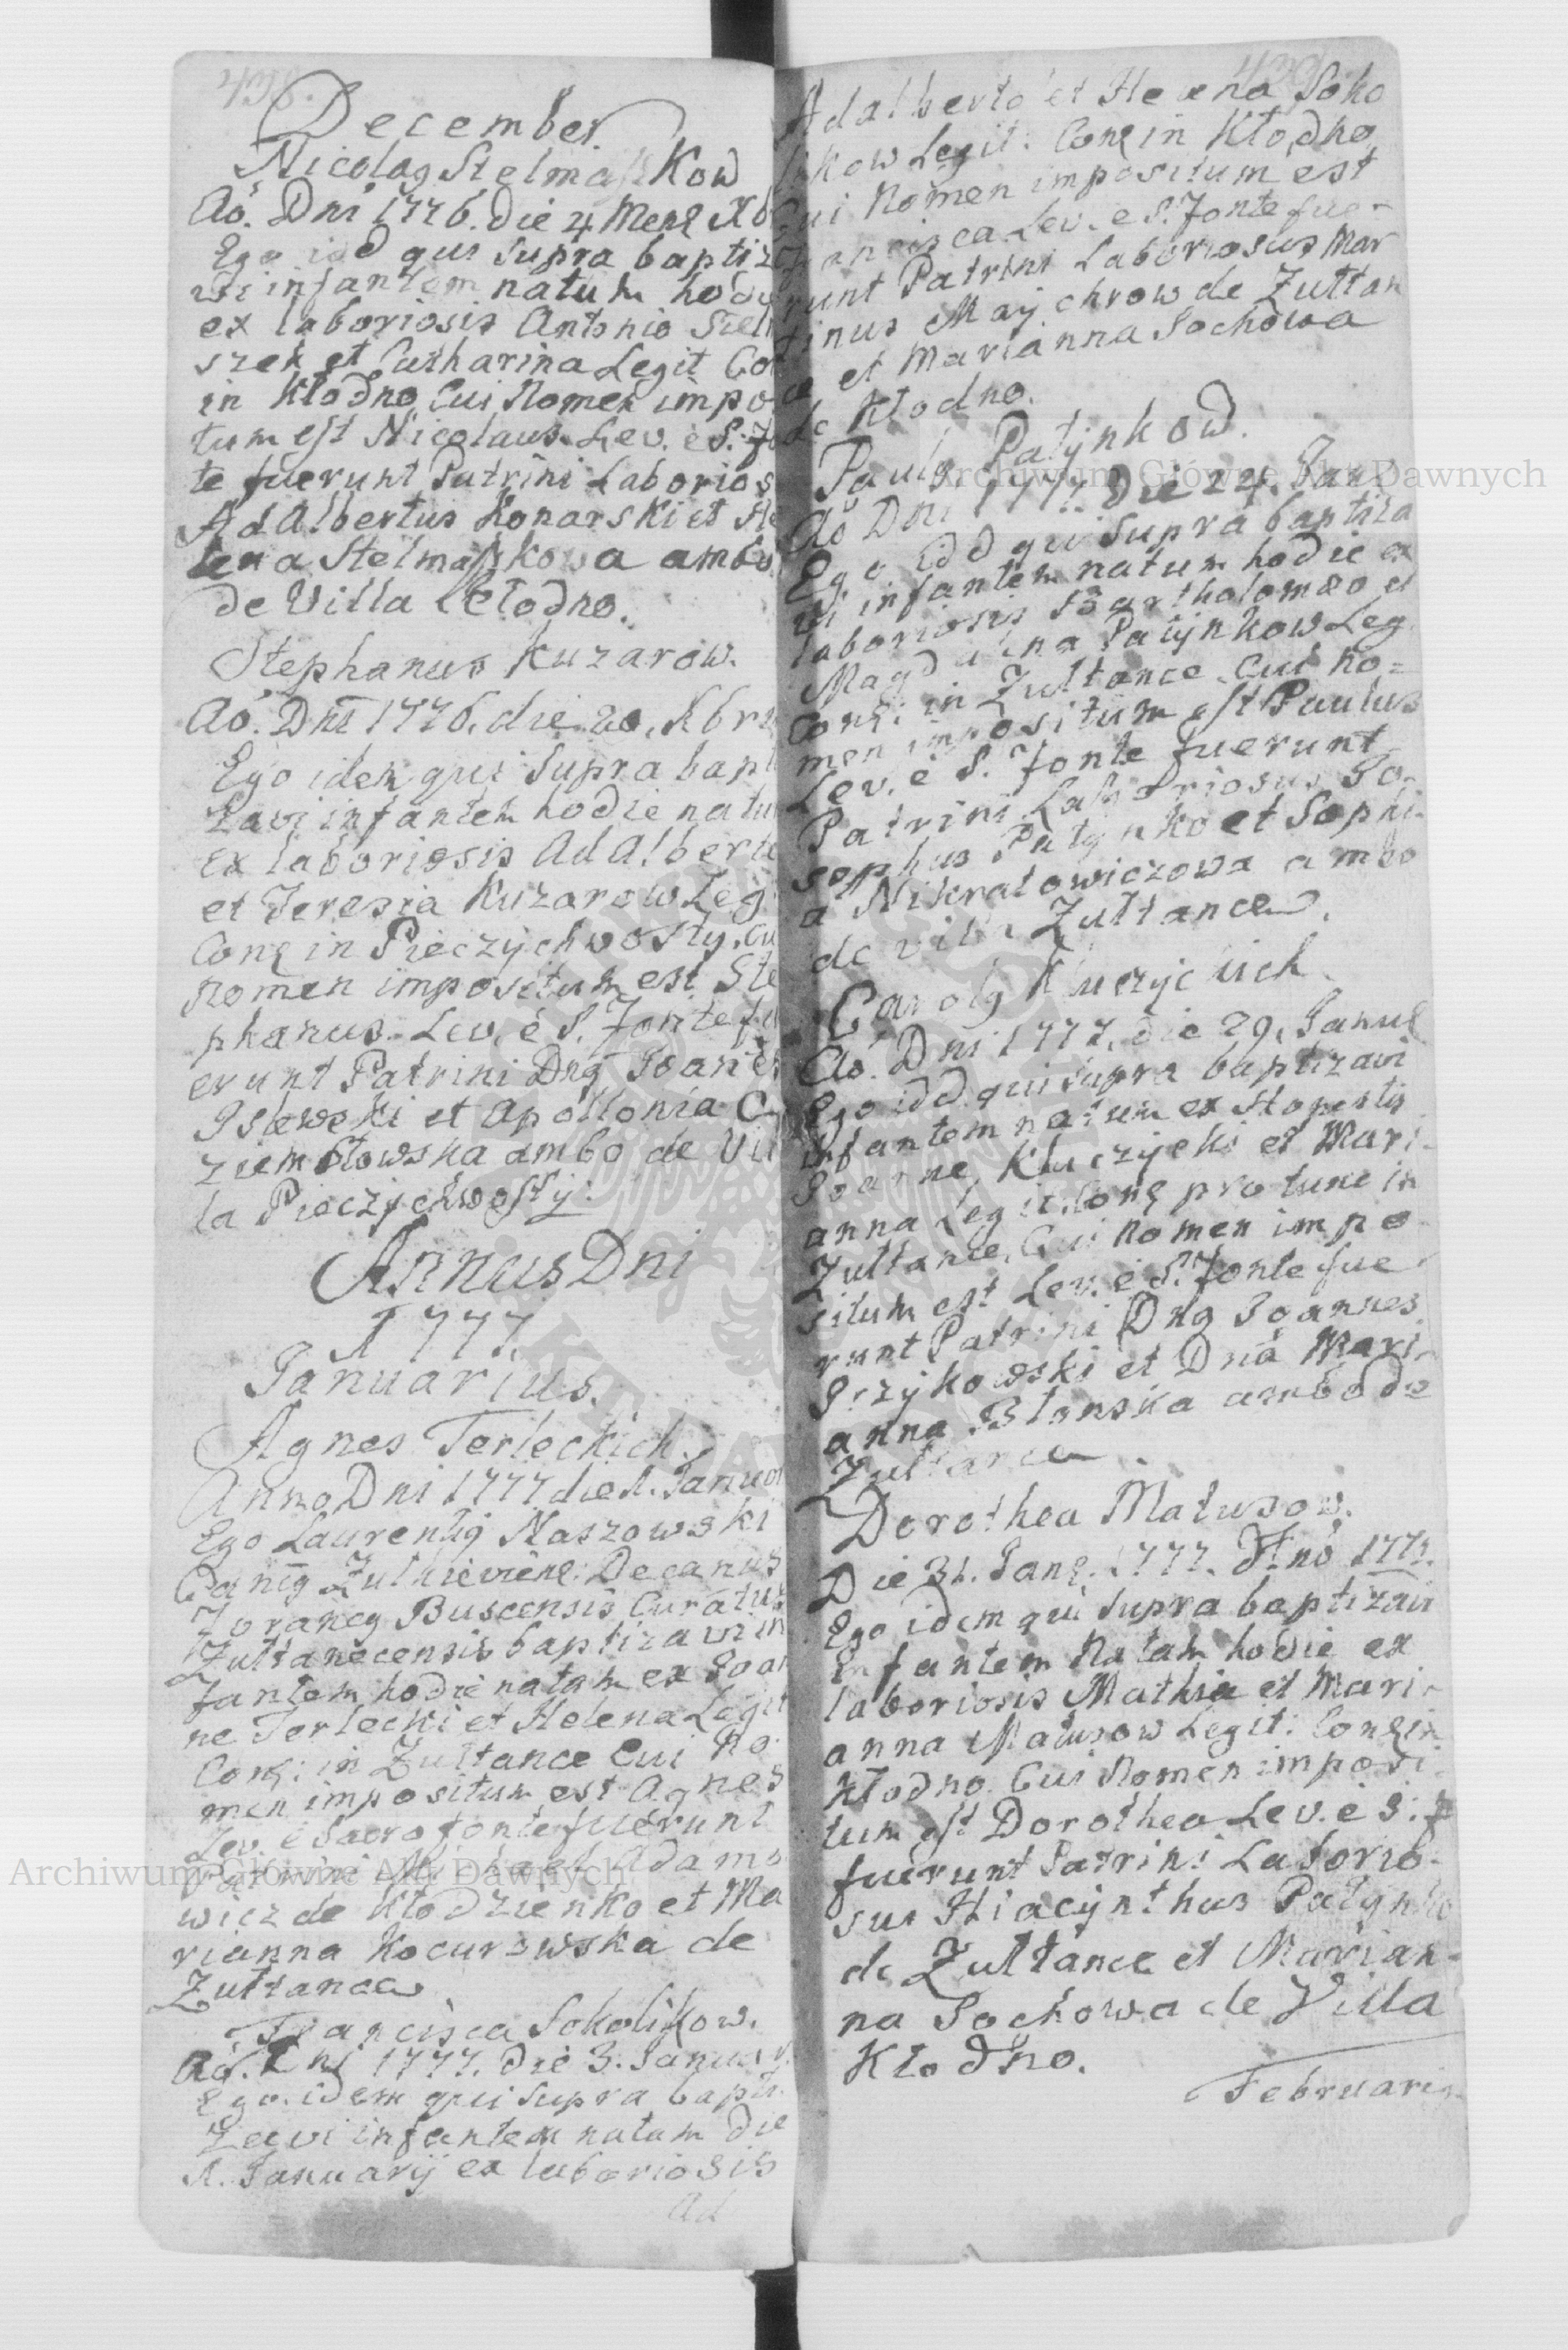 December
Nicolag Stelmaszkow
Aō. Dnī 1776. die 4 Mens Xb
Ego idd qui supra baptiz
vi infantem natum hody
ex laboriosis Antonio Stelm
szek et Catharina Legit Con
in Kłodno Cui Nomen impo
tum est Nicolaus. Lev. è S. fo
te fuerunt Patrini Laborios
AdAlbertus Konarski et He
lena Stelmaszkowa ambo
de Villa Kłodno.
Stephanus Kuzarow.
Aō. Dnī 1776. die 20. Xbri
Ego idem qui supra bapt
zavi infantem hodie natu
ex laboriosis AdAlberto
et Teresia Kuzarow Leg
Cons in Pieczychwosty. Cu
Nomen impositum est Ste
phanus. Lev. è S. Fonte fu
erunt Patrini Dng Joanes
et Apollonia C
ziembłowska ambo de Vil
la Pieczychwosty.
Annus Dni
1777.
Januarius.
Agnes Terleckich.
Anno Dni 1777 die 1. Januar
Ego Laurentig Naszowski
Decanus
Foraneg Buscensis Curatus
Zułtanecensis baptizavi in
fantem hodie natam ex Joan
ne Terlecki et Helena Legit
Cons: in Zułtance Cui No
men impositum est Agnes
Lev. è Sacro fonte fuerunt
Patrini Michael Adamo
wicz de Kłodzienko et Ma
rianna Kocurowska de
Zułtance
Francisca Sokolikow.
Aō. Dni 1777. die 3. Januar
Ego idem qui supra bapti
zavi infantem natam die
1. Januarij ex laboriosis
Ad
Adalberto et Helena Soko
likow Legit: Cons in Kłodno
Cui Nomen impositum est
Francisca Lev. e S. Fonte fue-
runt Patrini Laboriosus Mar
tinus Maychrow de Zułtan
ce et Marianna Sochowa
de Kłodno.
Paulg Patynkow.
Aō Dni 1777. Die 24. Jan
Ego idd qui supra baptiza
vi infantem natum hodie ex
laboriosis Bartholomæo et
Magdalena Patynkow Leg
Cons: in Zułtance. Cui No=
men impositum est Paulus
Lev. è S. Fonte fuerunt
Patrini Laboriosus Jo-
sephus Patynko et Sophi-
a Nikratowiczowa ambo
de villa Zułtance.
Carolg Kluczyckich.
Aō. Dni 1777. die 29. Janu
Ego idd. qui supra baptizavi
infantem natum ex
Joanne Kluczycki et Mari-
anna Legit. Cons pro tunc in
Zułtance, Cui Nomen impo
situm est Lev. è S. Fonte fue
runt Patrini Dng Joannes
et Dna Mari-
anna Błonska ambo de
Zułtance
Dorothea Matusow.
Die 31. Jans. 1777. Año 1777.
Ego idem qui supra baptizavi
Infantem Natam hodie ex
laboriosis Mathia et Mari-
anna Matusow Legit: Cons in
Kłodno. Cui Nomen imposi
tum est Dorothea Lev. è S: F
fuerunt Patrini Laborio-
sus Hiacynthus Patynko
de Zułtance et Marian-
na Sochowa de Villa
Kłodno.
Februari
Archiwum Główne Akt Dawnych
Archiwum Główne Akt Dawnych